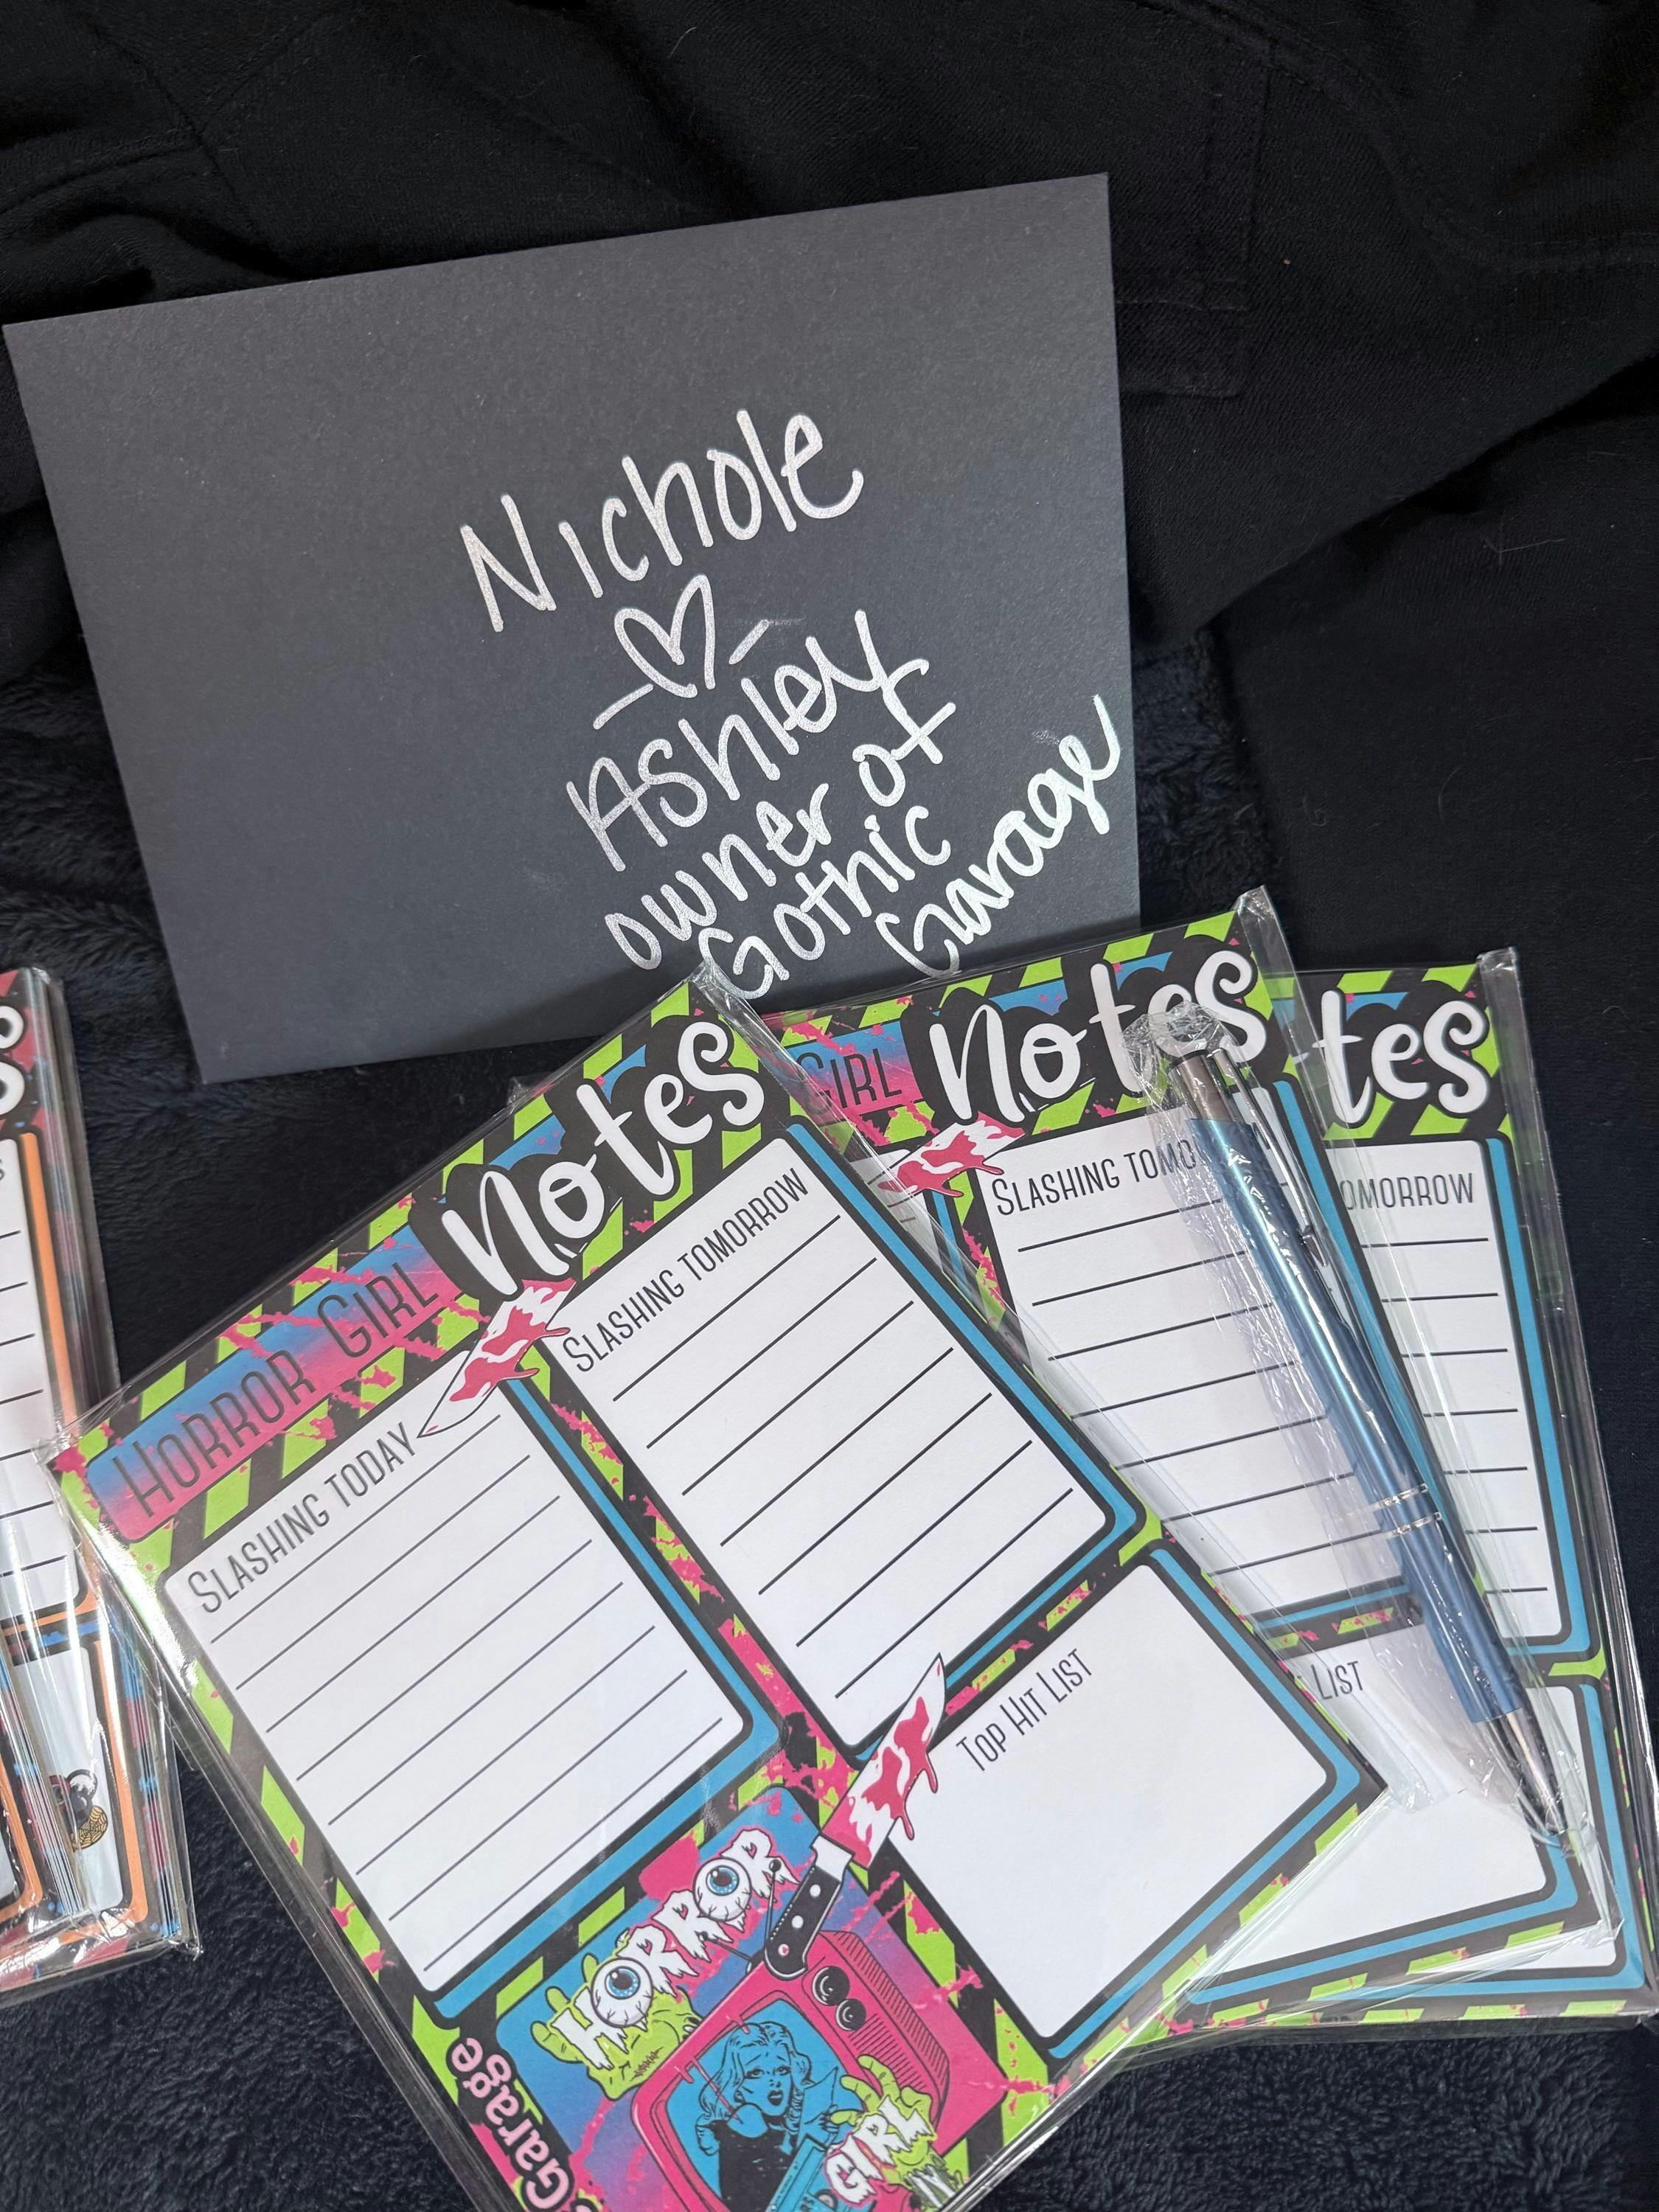 Nichole
Ashley
owner of
Gothic
Garage
Horror Girl Notes
Slashing today
Slashing tomorrow
Top Hit List
Horror
Girl
Garage
Girl Notes
Slashing tomo
List
tes
omorrow